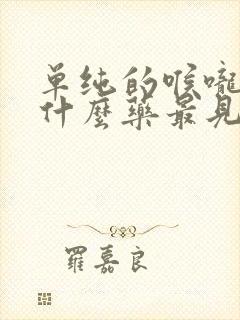 单纯的喉嚨
什麼藥最見
羅嘉良